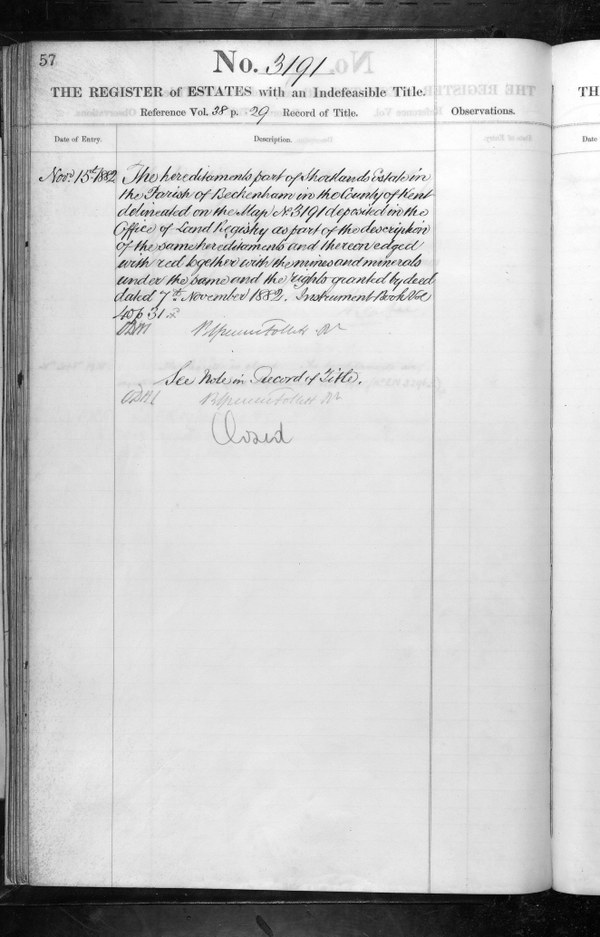 57
No. 3191
THE REGISTER of ESTATES with an Indefeasible Title.
Reference Vol. 38 p. 29 Record of Title.
Observations.
Date of Entry.
Description.
Novr. 15th 1882
The hereditaments part of Shortlands Estate in
the Parish of Beckenham in the County of Kent
delineated on the Map No 3191 deposited in the
Office of Land Registry as part of the description
of the same hereditaments and thereon edged
with red together with the mines and minerals
under the same and the rights granted by deed
dated 7th November 1882. Instrument Book Vol
40 p 31
See Note in Record of Title.
Closed
TH
Date